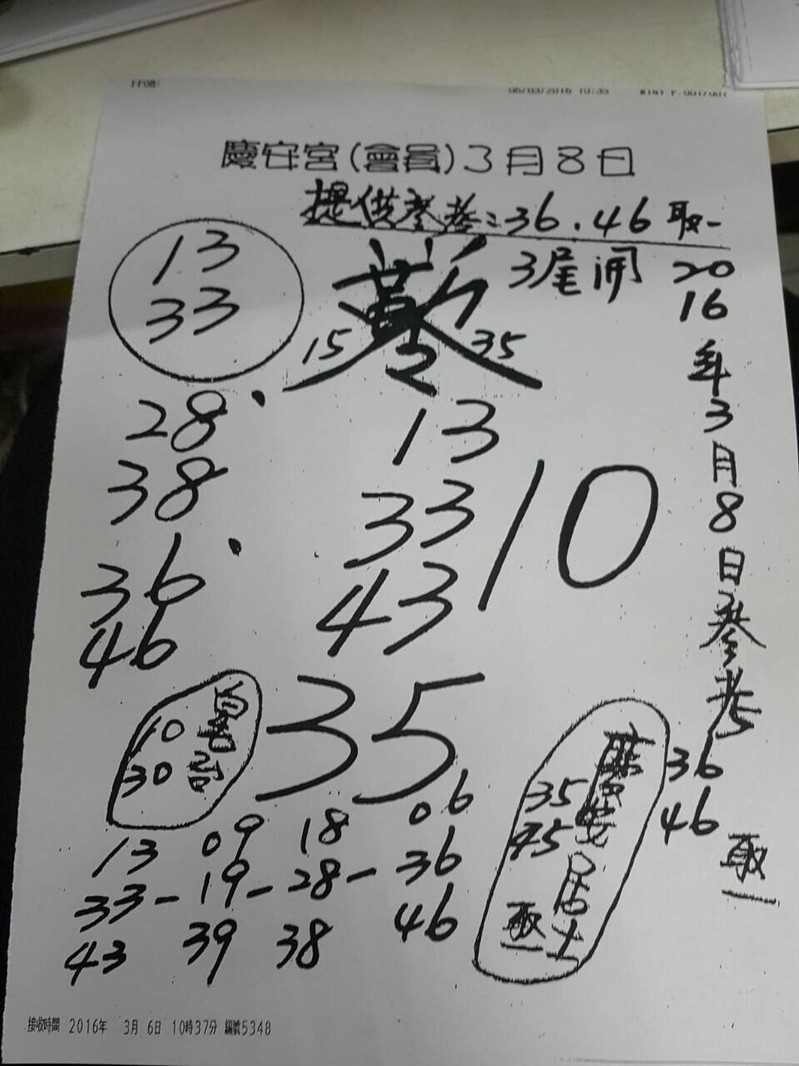 慶安宮(會員)3月8日
提供參考:36.46取一
3尾開
13
33
15
35
2016年3月8日參考
36
46
取一
28
38
36
46
13
33
43
10
35
10
30
13 09 18 06
33-19-28-36
43 39 38 46
慶安居士
35
45
取一
接收時間 2016年 3月 6日 10時37分 編號5348